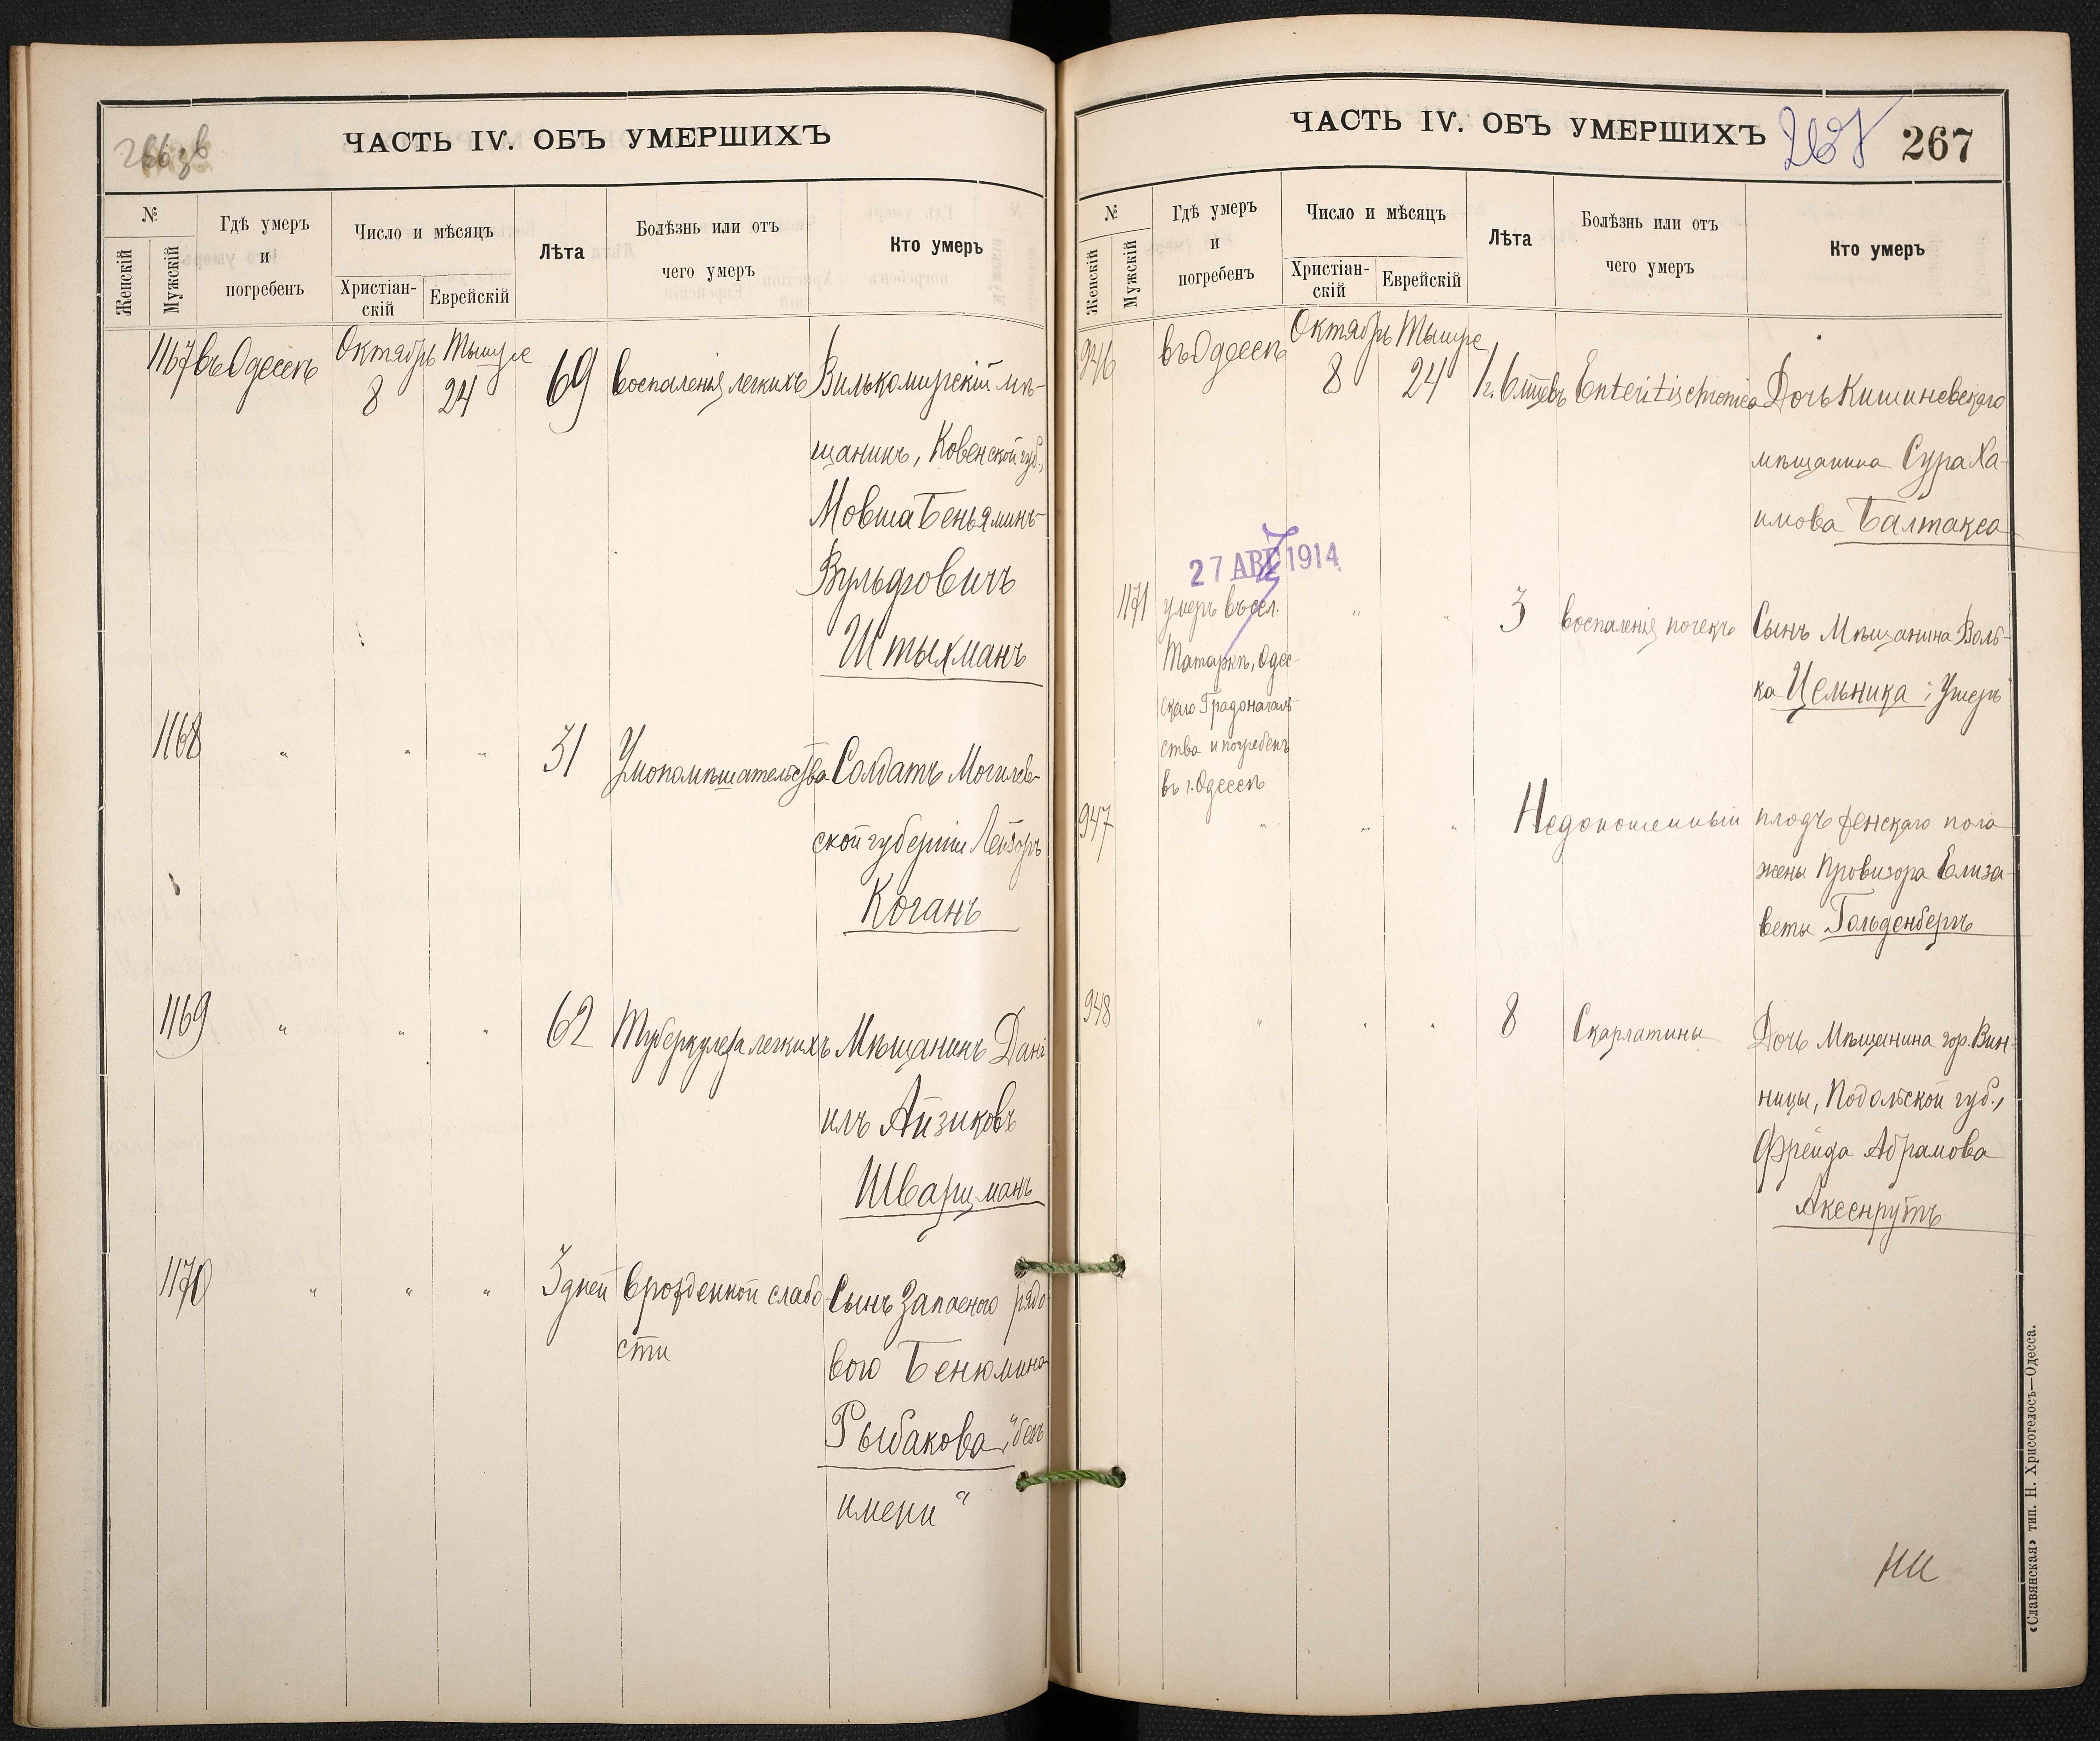 266 зв
ЧАСТЬ IV. ОБЪ УМЕРШИХЪ
№
Женскій
Мужскій
Гдѣ умеръ
и
погребенъ
Число и мѣсяцъ
Христіан-
скій
Еврейскій
Лѣта
Болѣзнь или отъ
чего умеръ
Кто умеръ
1167 въ Одессѣ Октябрь 8 Тышре 24 69 воспаленія легкихъ Вилькомирскій мѣ-
щанинъ, Ковенской губ.,
Мовша Беньяминъ-
Вульфовичъ
Штыхманъ
1168 " " " 31 Умопомѣшательства Солдатъ Могилев-
ской губерніи Лейзоръ
Коганъ
1169 " " " 62 Туберкулеза легкихъ Мѣщанинъ Дані-
илъ Айзиковъ
Шварцманъ
1170 " " " 3 дней врожденной слабо- Сынъ Запасного рядо-
сти вого Бенюмина
Рыбакова, "безъ
имени"
ЧАСТЬ IV. ОБЪ УМЕРШИХЪ
267
267
№
Женскій
Мужскій
Гдѣ умеръ
и
погребенъ
Число и мѣсяцъ
Христіан-
скій
Еврейскій
Лѣта
Болѣзнь или отъ
чего умеръ
Кто умеръ
946 въ Одессѣ Октябрь 8 Тышре 24 1 г. 6 мцевъ Enteritis chronica Дочь Кишиневскаго
мѣщанина Сура Ха-
имова Балтакса
27 АВГ 1914
1171 умеръ въ сел. " " 3 воспаленія почекъ Сынъ Мѣщанина Воль-
Татаркѣ, Одес- ка Цельника; Умеръ
скаго Градоначаль-
ства и погребенъ
въ г. Одессѣ
947 " " " Недоношенный плодъ женскаго пола
жены Провизора Елиза-
веты Гольденбергъ
948 " " " 8 Скарлатины Дочь Мѣщанина гор. Вин-
ницы, Подольской губ.,
Фрейда Абрамова
Аксенрутъ
«Славянская» тип. Н. Хрисогелосъ—Одесса.